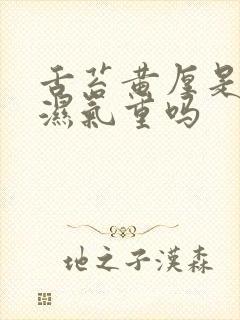 舌苔黄厚是
濕氣重吗
地之子漢森